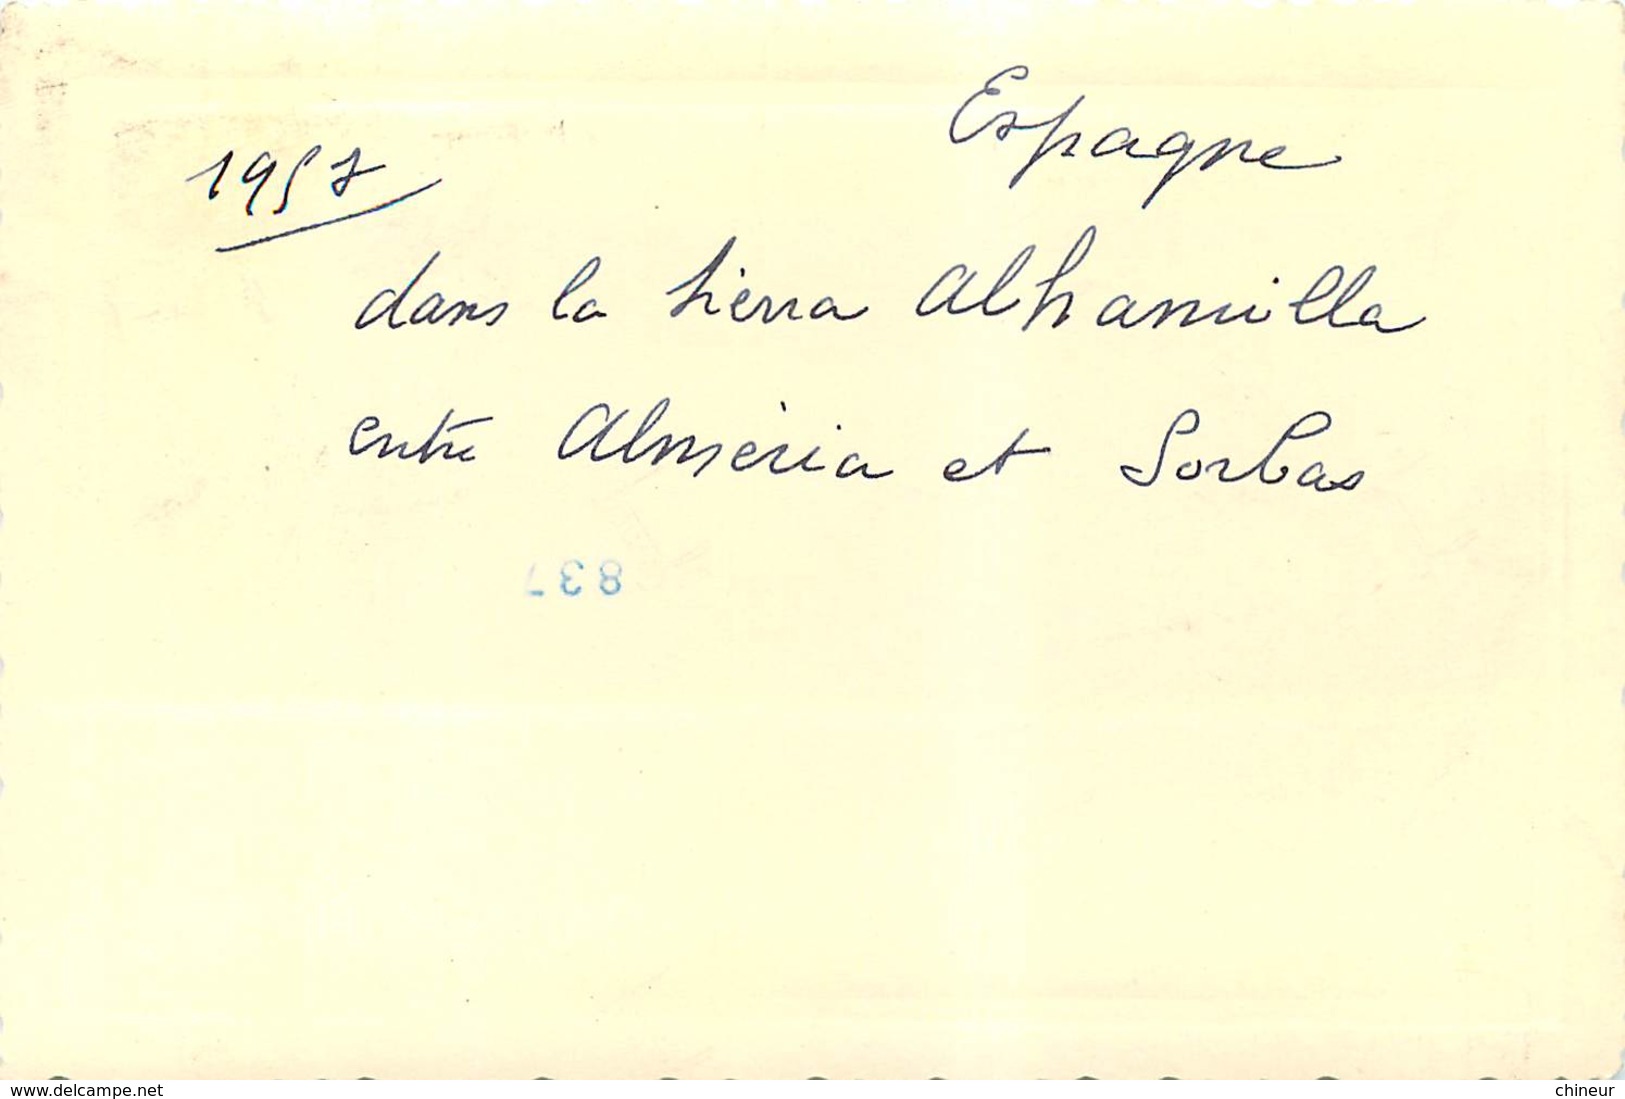 Espagne
1957
dans la sierra Alhamilla
entre Alméria et Sorbas
837
www.delcampe.net
chineur